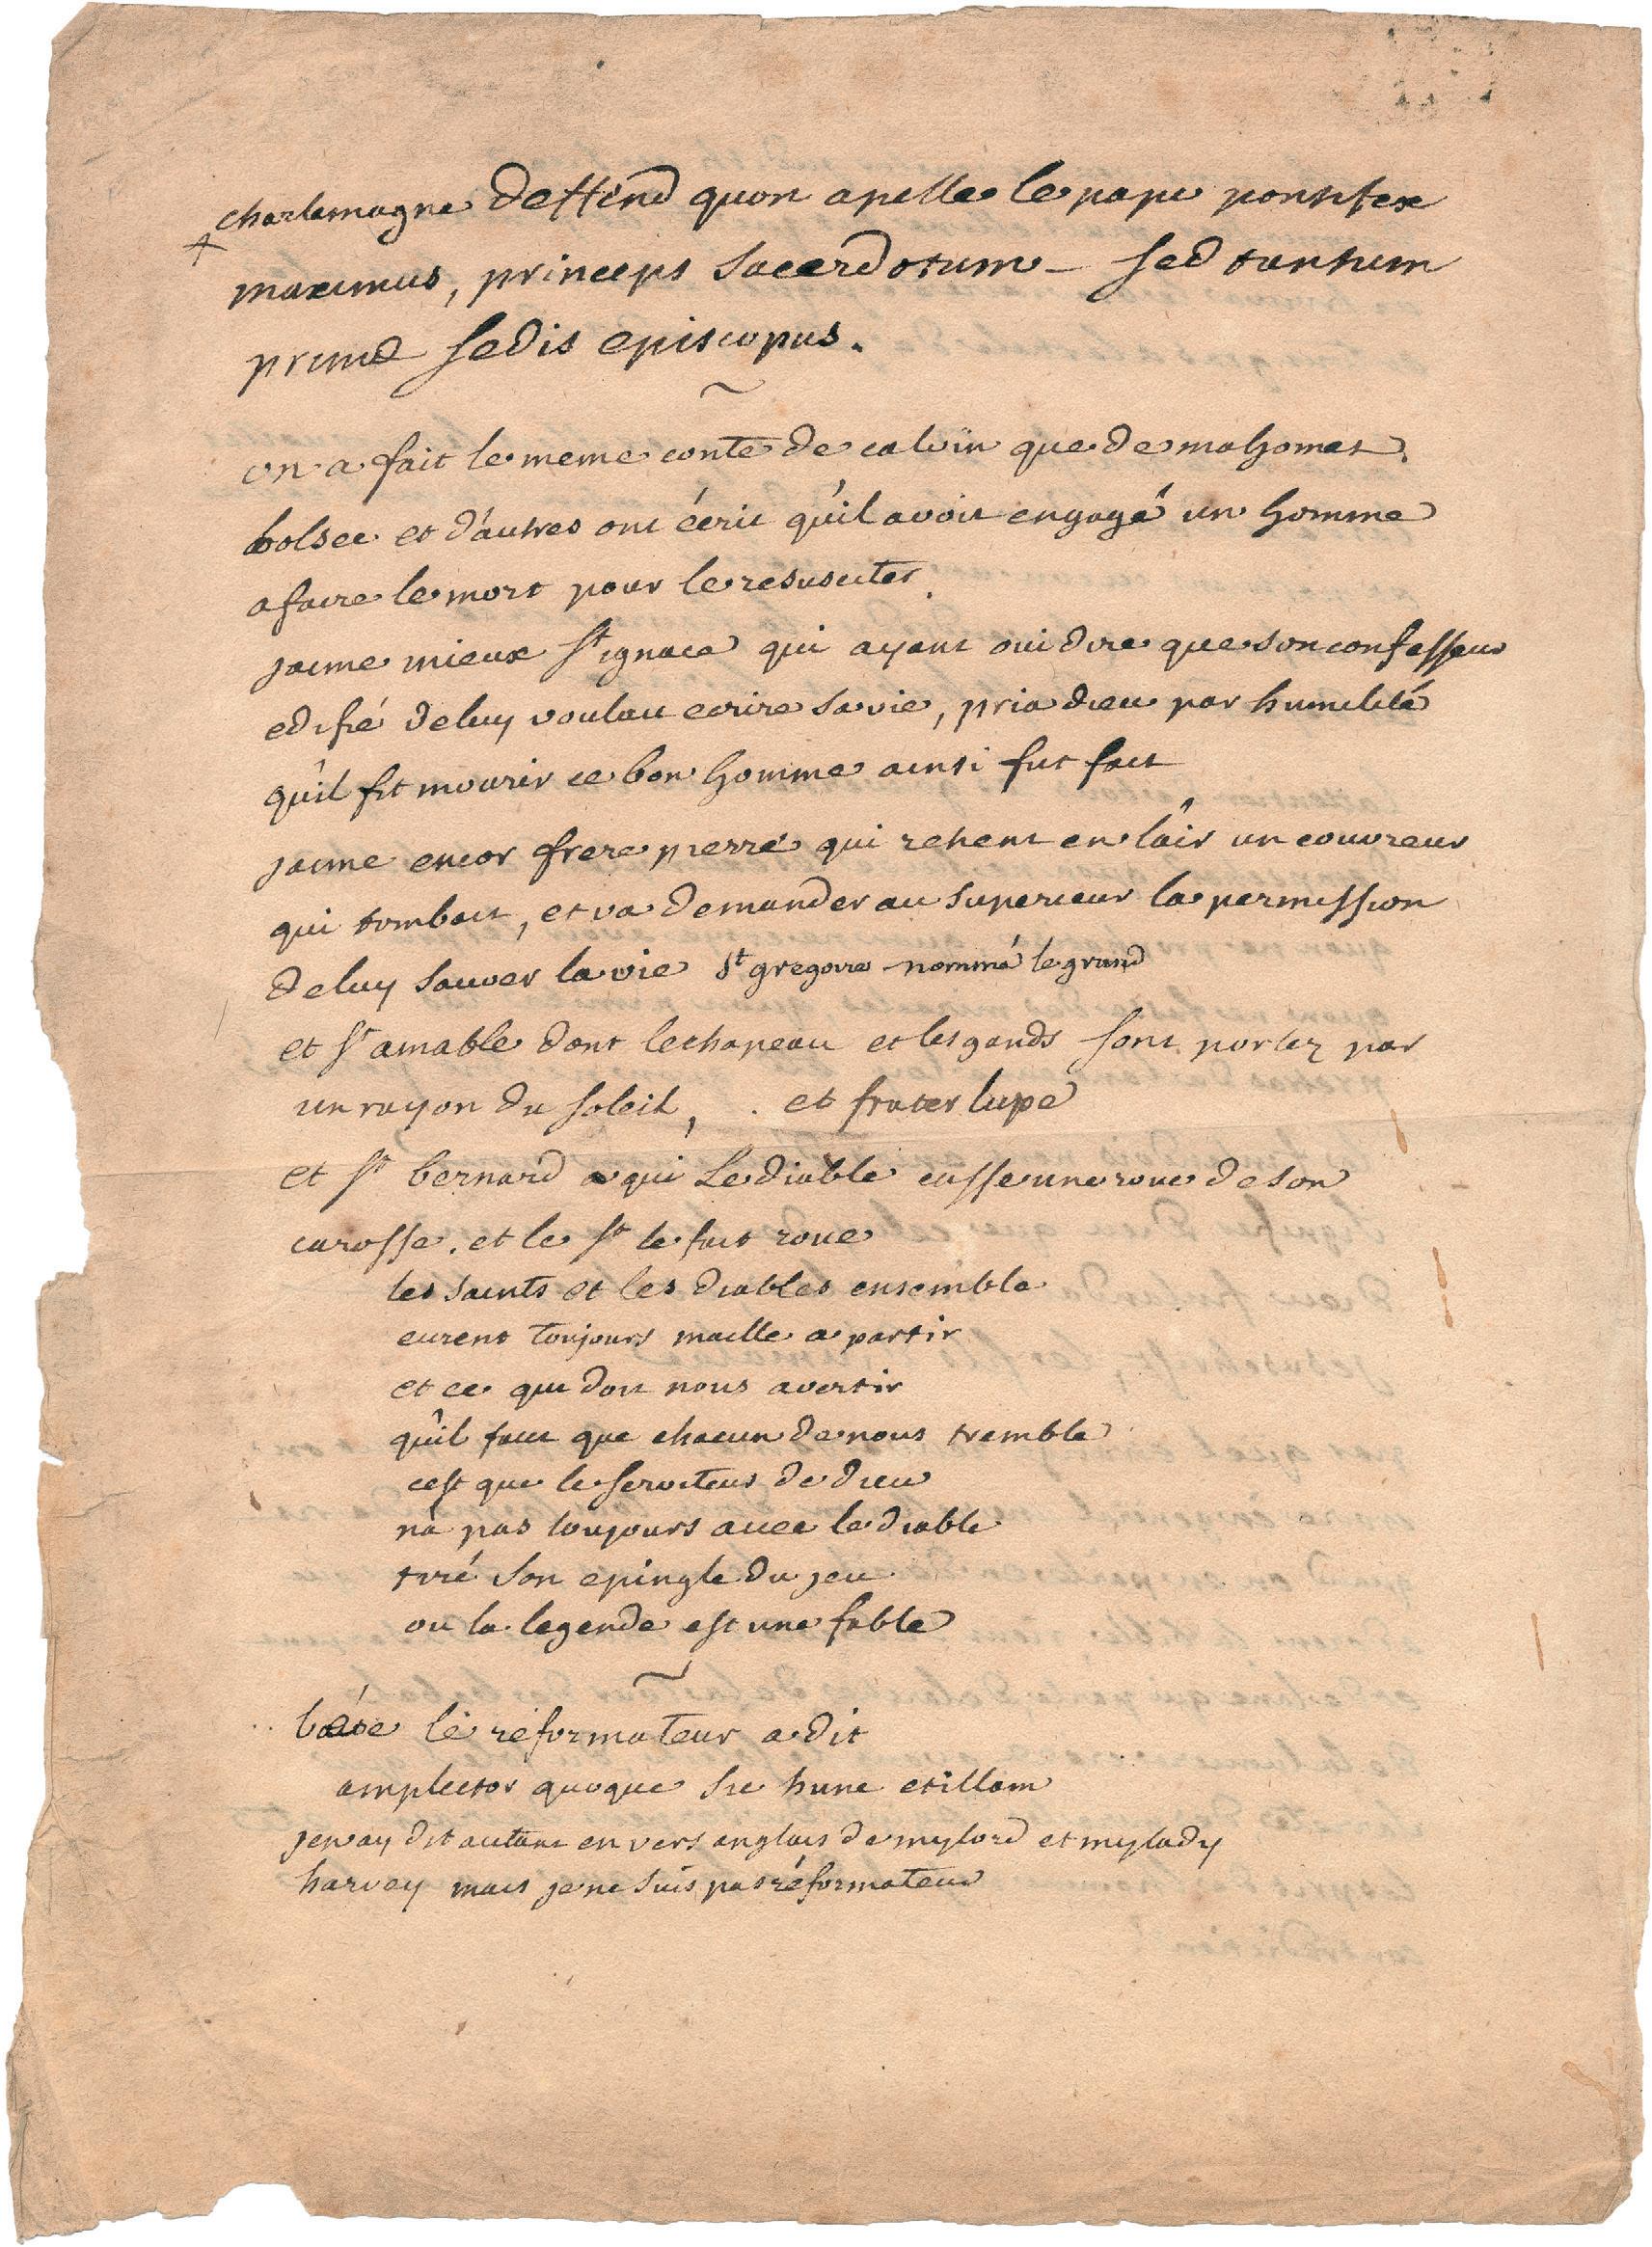 charlemagne deffend quon apelle le pape pontifex
maximus, princeps sacerdotum – sed tantum
primæ sedis episcopus.
on a fait le meme conte de calvin que de mahomet.
bolsec et d'autres ont écrit qu'il avoit engagé un homme
a faire le mort pour le resusciter.
jaime mieux St ignace qui ayant oui dire que son confesseur
edifié de luy voulait ecrire sa vie, pria dieu par humilité
qu'il fit mourir ce bon homme ainsi fut fait
jaime encor frere pierre qui retient en l'air un couvreur
qui tombait, et va demander au superieur la permission
de luy sauver la vie St gregoire nommé le grand
et St amable dont le chapeau et les gands sont portez par
un rayon du soleil, . et frater lupe
et St bernard a qui Le diable casse une roue de son
carosse. et le St le fait roue
les saints et les diables ensemble
eurent toujours maille a partir
et ce qui doit nous avertir
qu'il faut que chacun de nous tremble
cest que le serviteur de dieu
na pas toujours avec le diable
tiré son epingle du jeu
ou la legende est une fable
béze le réformateur a dit
amplector quoque sic hunc et illam
jen ay dit autant en vers anglais de mylord et mylady
harvey mais je ne suis pas réformateur